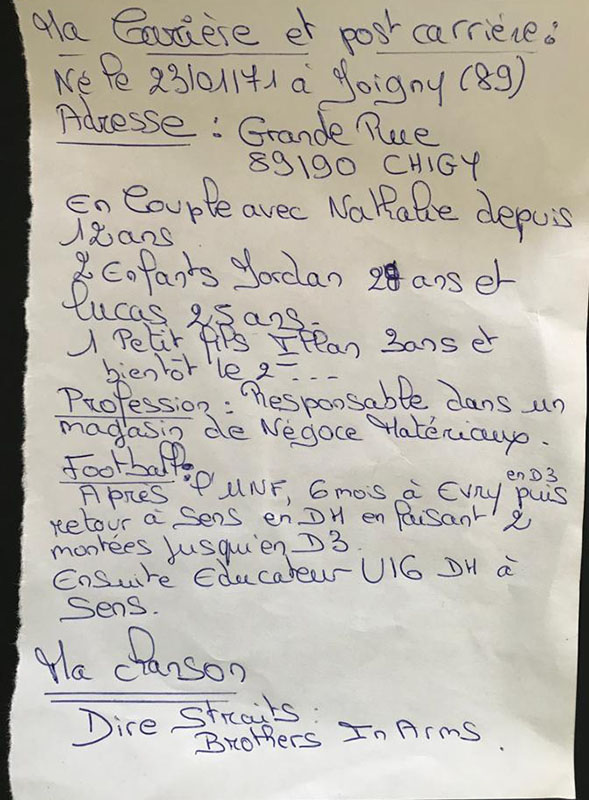 Ma Carrière et post carrière :
Né le 23/01/71 à Joigny (89)
Adresse : Grande Rue
89190 CHIGY
En Couple avec Nathalie depuis
12 ans
2 Enfants Jordan ans et
Lucas 25 ans.
1 Petit fils 3ans et
bientôt le 2 ...
Profession : Responsable dans un
magasin de Négoce Matériaux.
Football :
Après l'UNF, 6 mois à Evry en D3 puis
retour à Sens en DH en faisant 2
montées jusqu'en D3.
Ensuite Educateur U16 DH à
Sens.
Ma chanson
Dire Straits :
Brothers In Arms.